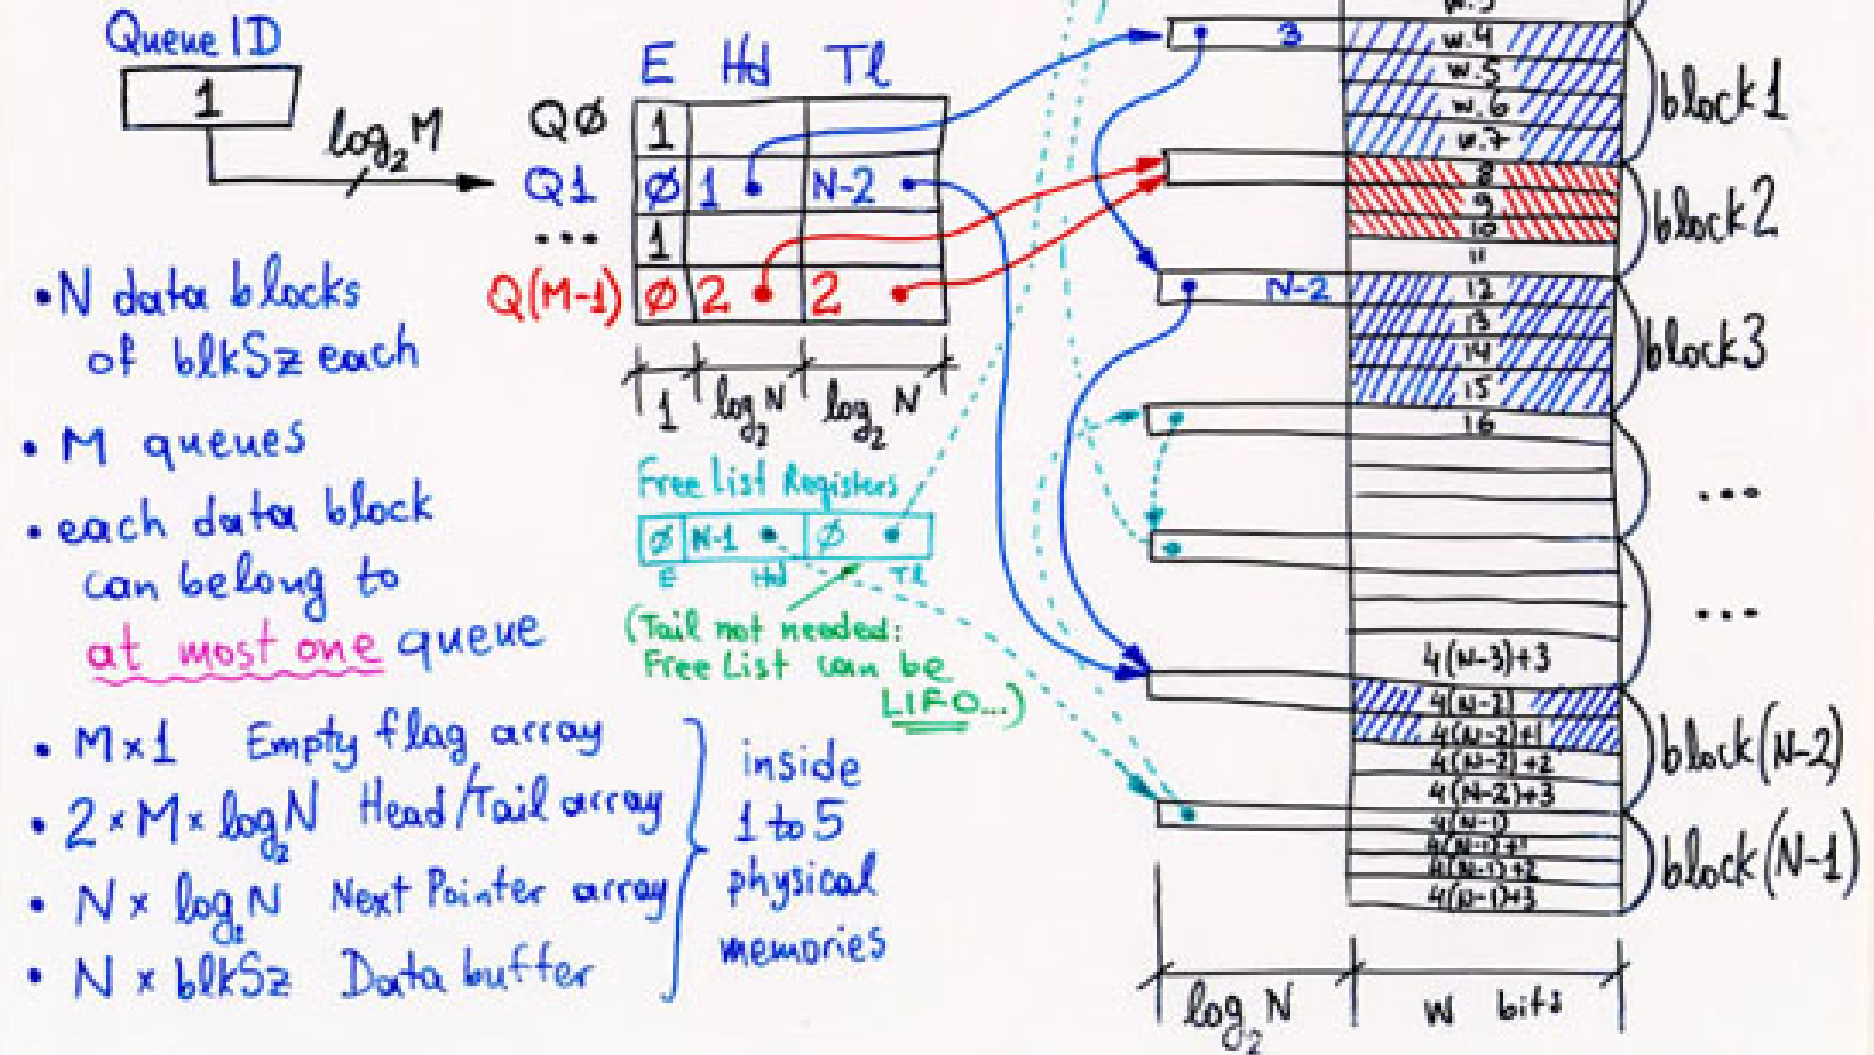 Queue ID
1
log₂M
E Hd Tl
QØ 1
Q1 Ø 1 N-2
... 1
Q(M-1) Ø 2 2
1 log₂N log₂N
• N data blocks
of blkSz each
• M queues
• each data block
can belong to
at most one queue
Free List Registers
Ø N-1 Ø
E Hd Tl
(Tail not needed:
Free List can be
LIFO...)
• M×1 Empty flag array
• 2×M×log₂N Head/Tail array
• N× log₂N Next Pointer array
• N × blkSz Data buffer
inside
1 to 5
physical
memories
3 w.4
w.5
w.6
w.7
block1
8
9
10
11
block2
N-2 12
13
14
15
block3
16
...
...
4(N-3)+3
4(N-2)
4(N-2)+1
4(N-2)+2
4(N-2)+3
block(N-2)
4(N-1)
4(N-1)+1
4(N-1)+2
4(N-1)+3
block(N-1)
log₂N w bits